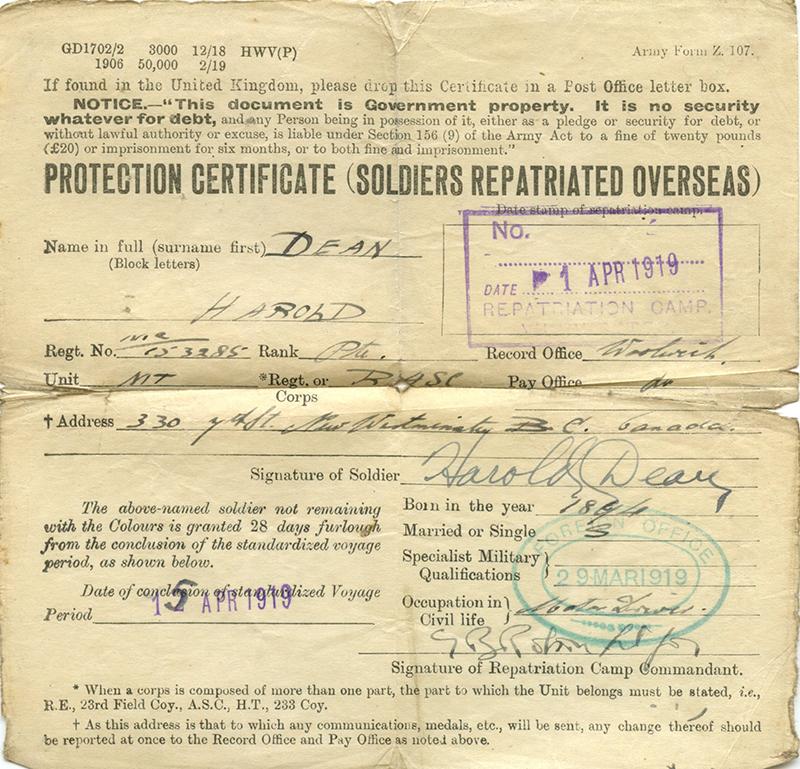 GD1702/2 3000 12/18 HWV(P)
1906 50,000 2/19
Army Form Z. 107.
If found in the United Kingdom, please drop this Certificate in a Post Office letter box.
NOTICE.—"This document is Government property. It is no security
whatever for debt, and any Person being in possession of it, either as a pledge or security for debt, or
without lawful authority or excuse, is liable under Section 156 (9) of the Army Act to a fine of twenty pounds
(£20) or imprisonment for six months, or to both fine and imprisonment."
PROTECTION CERTIFICATE (SOLDIERS REPATRIATED OVERSEAS)
Date stamp of repatriation camp.
No.
DATE 1 APR 1919
REPATRIATION CAMP.
Name in full (surname first) DEAN
(Block letters)
HAROLD
Regt. No. M2/153285 Rank Pte. Record Office Woolwich.
Unit MT *Regt. or Corps RASC Pay Office do
† Address 330 7th St. New Westminster B.C. Canada.
Signature of Soldier Harold Dean
The above-named soldier not remaining
with the Colours is granted 28 days furlough
from the conclusion of the standardized voyage
period, as shown below.
Date of conclusion of standardized Voyage
Period 15 APR 1919
Born in the year 1894
Married or Single S
Specialist Military
Qualifications
FOREIGN OFFICE
29 MAR 1919
Occupation in
Civil life Motor Driver.
Signature of Repatriation Camp Commandant.
* When a corps is composed of more than one part, the part to which the Unit belongs must be stated, i.e.,
R.E., 23rd Field Coy., A.S.C., H.T., 233 Coy.
† As this address is that to which any communications, medals, etc., will be sent, any change thereof should
be reported at once to the Record Office and Pay Office as noted above.